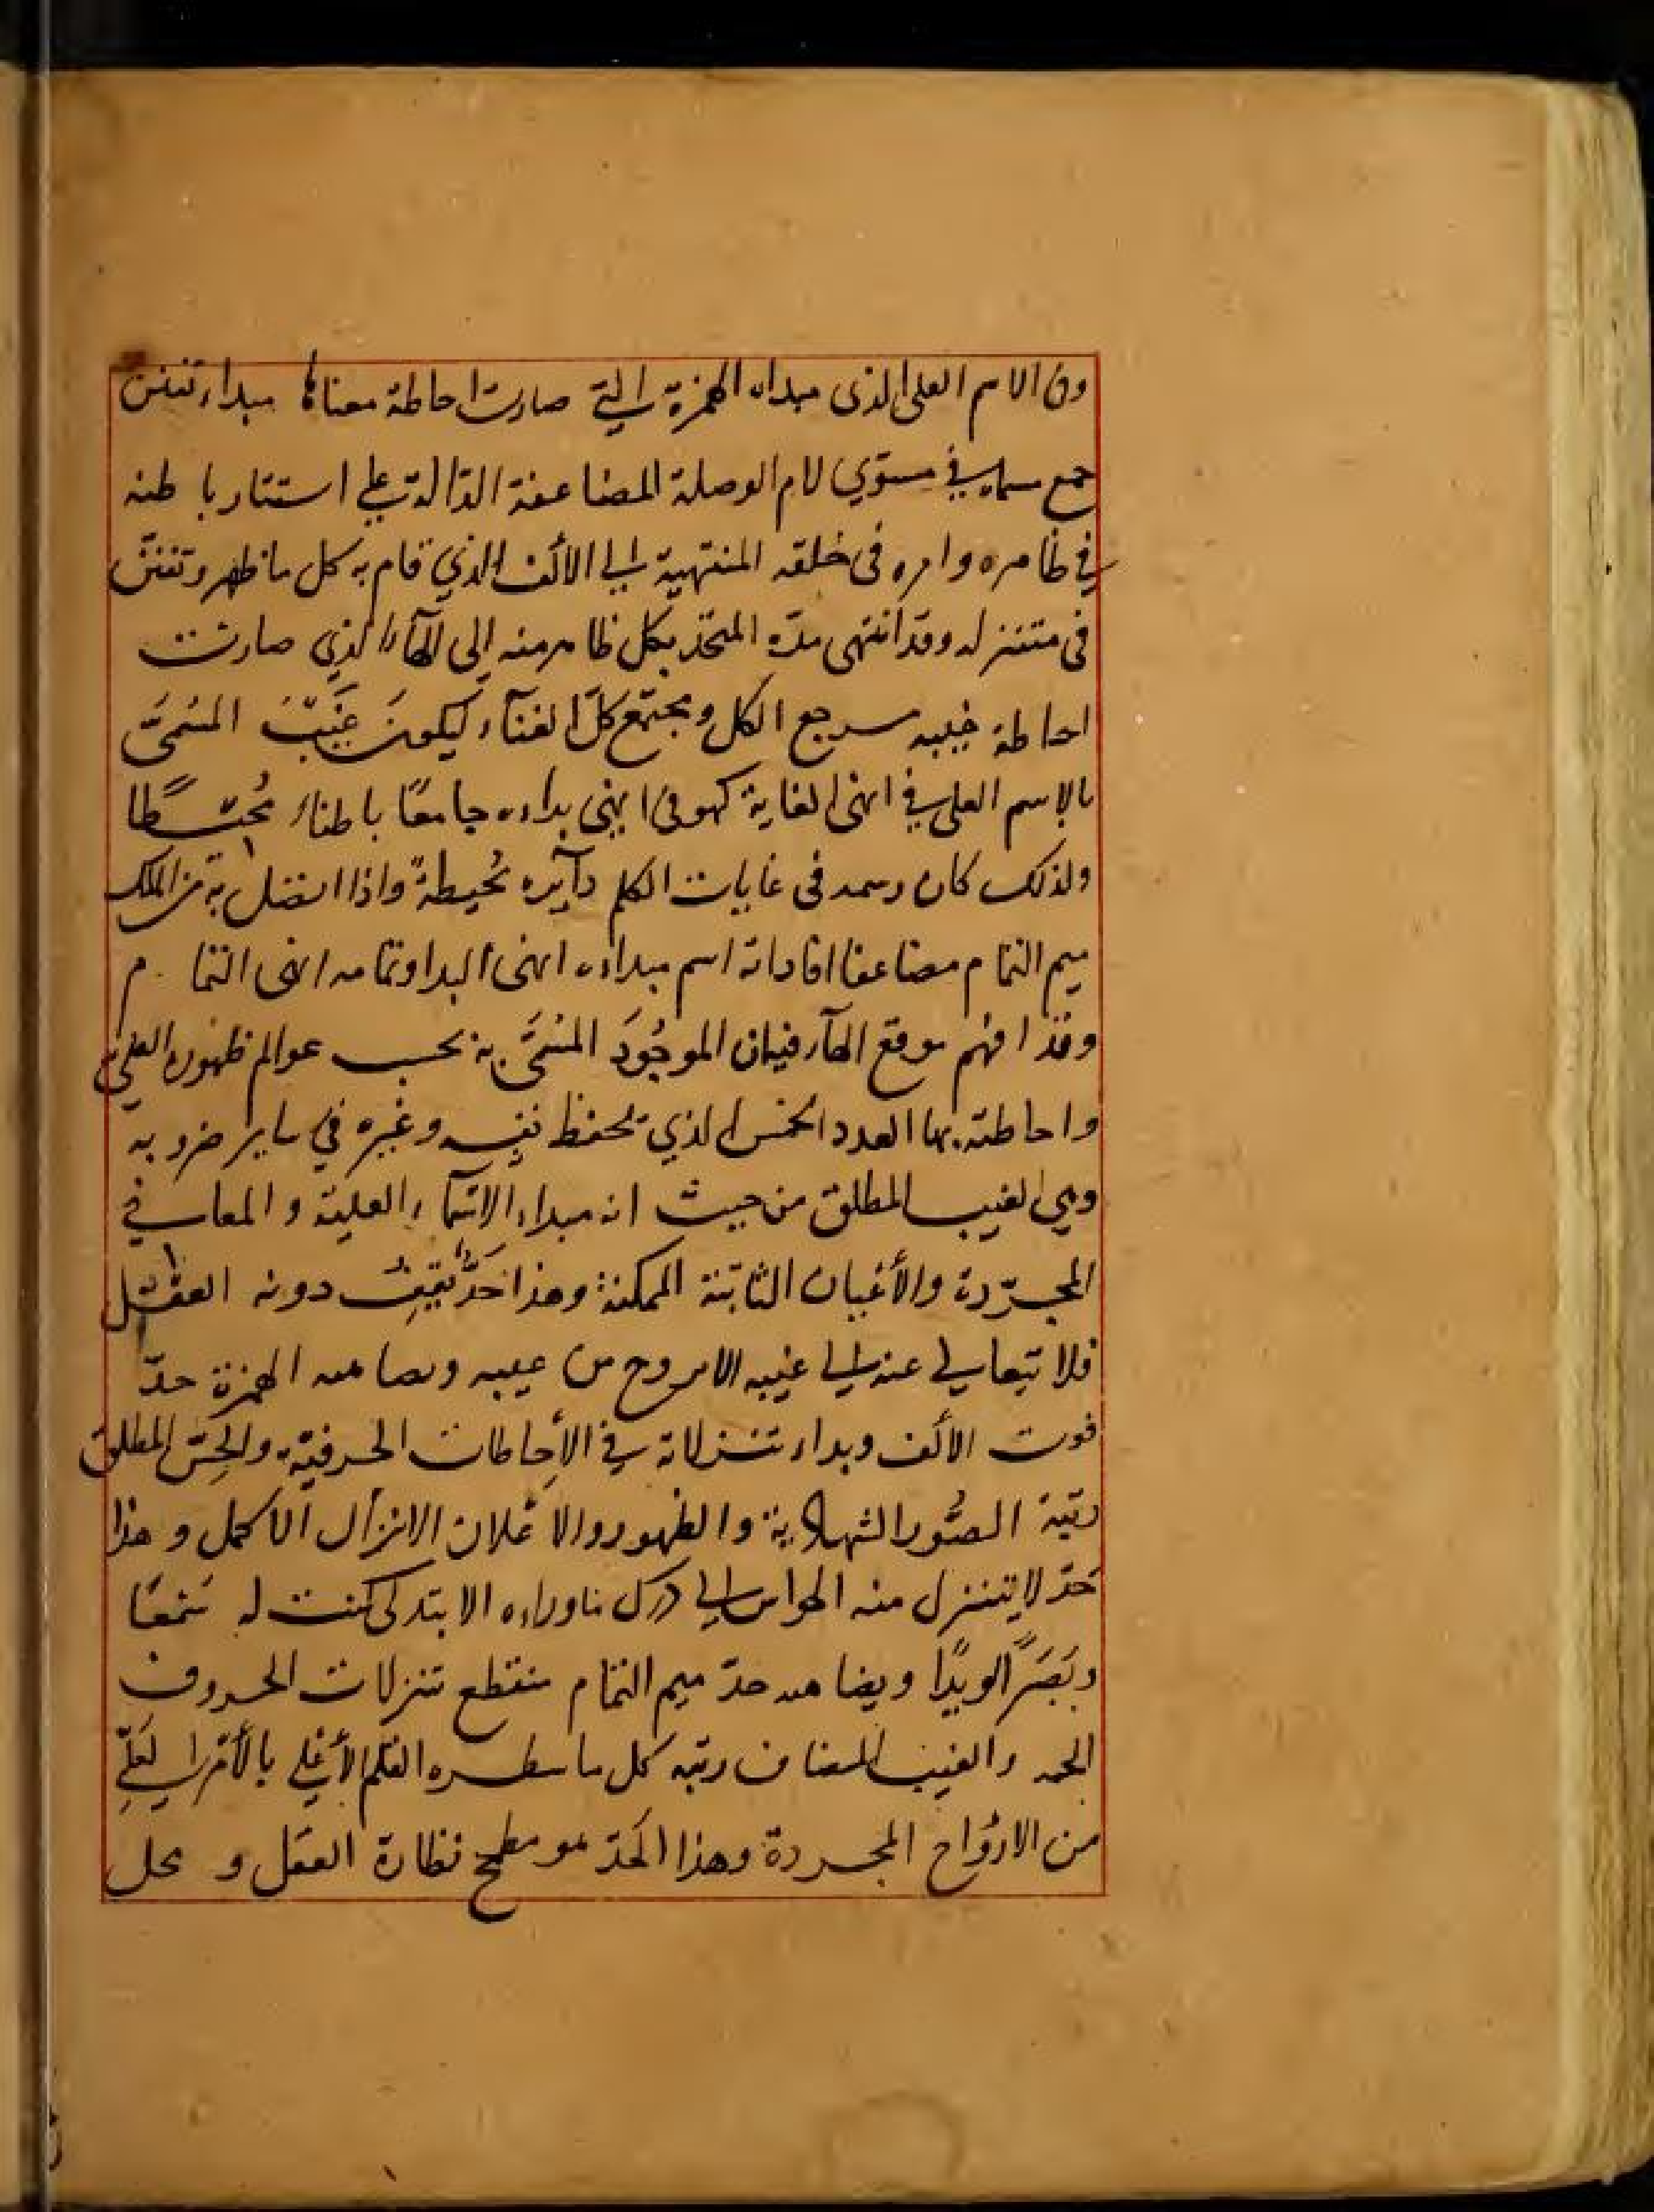 ون الاسم العلى الذى مبداه الهمزة التي صارت احاطة معناها مبداء تفنن
جمع سماه في مستوي لام الوصلة المضاعفة الدّالة على استتار باطنه
في ظاهره وامره فى خلقه المنتهية الي الألف الذي قام به كل ما ظهر وتفنن
فى متنزله وقد انتهى مدّه المتحد بكل ظاهر منه إلى الهآء الذي صارت
احاطة غيبه مرجع الكل ومجتمع كلّ الغنآء ليكون غيب المسمَّى
بالاسم العلى في انهى الغاية كهو فى ابهى بداءه جامعًا باطنا محيطًا
ولذلك كان رسمه فى غايات الكلم دآيره مُحيطةً واذا اتصل به من الملك
ميم التمام مضاعفا افاد انه اسم مبداءه انهى البدا وتمامه انهى التمام
وقد افهم موقع الهآء فيه ان الموجُودَ المسمَّى به بحسب عوالم ظهوره العلى
واحاطته بها العدد الخمس الذي يحفظ نفسه وغيره في ساير ضروبه
وهي الغيب المطلق من حيث انه مبداء الاسمآء العليّة والمعاني
المجرّدة والأعيان الثابتة الممكنة وهذا حَدٌّ يقِفُ دونه العقل
فلا تيعالي عنه الي غيبه الا بروح من غيبه ويضاهيه الهمزة حدّ
فوت الألف وبداء تنزلاته في الأحاطات الحرفيّة والحِسّ المطلق
رتبة الصُّور الشهادية والظهور والاعلان الانزال الاكمل وهذا
حَدّ لا يتنزل منه الحواس الي درك ماوراءه الا بتدلى كنت له سَمعًا
وبَصَرًا ويدًا ويضاهيه حدّ ميم التمام منقطع تنزلات الحروف
الجمه والغيب المضاف رتبة كل ما سطره القلم الأعلي بالأمر العلي
من الارواح المجردة وهذا الحَدّ هو مطمح نظارة العقل و محل